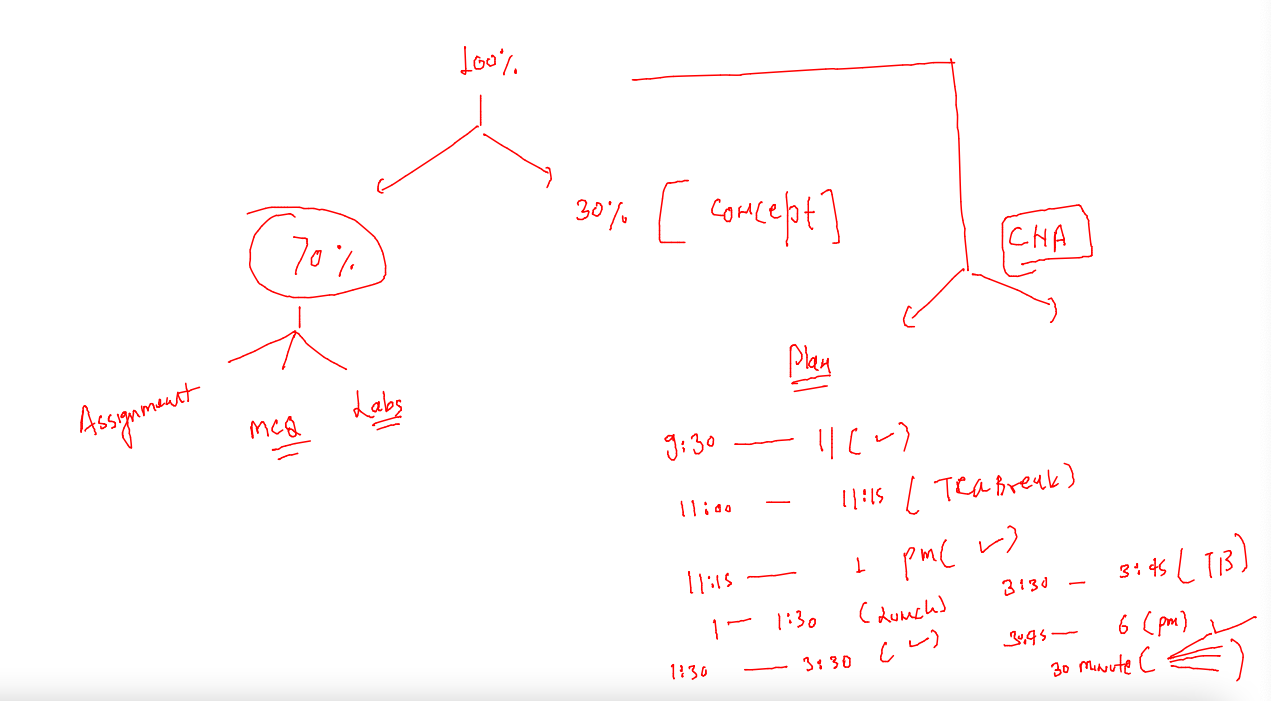 100%
30% [ Concept ]
CHA
70%
Plan
Assignment
MCQ
Labs
9:30 — 11 ( ✓ )
11:00 — 11:15 ( TeaBreak )
11:15 — 1 pm ( ✓ )
1 — 1:30 ( Lunch )
1:30 — 3:30 ( ✓ )
3:30 — 3:45 ( TB )
3:45 — 6 (pm) ✓
30 minute ( )